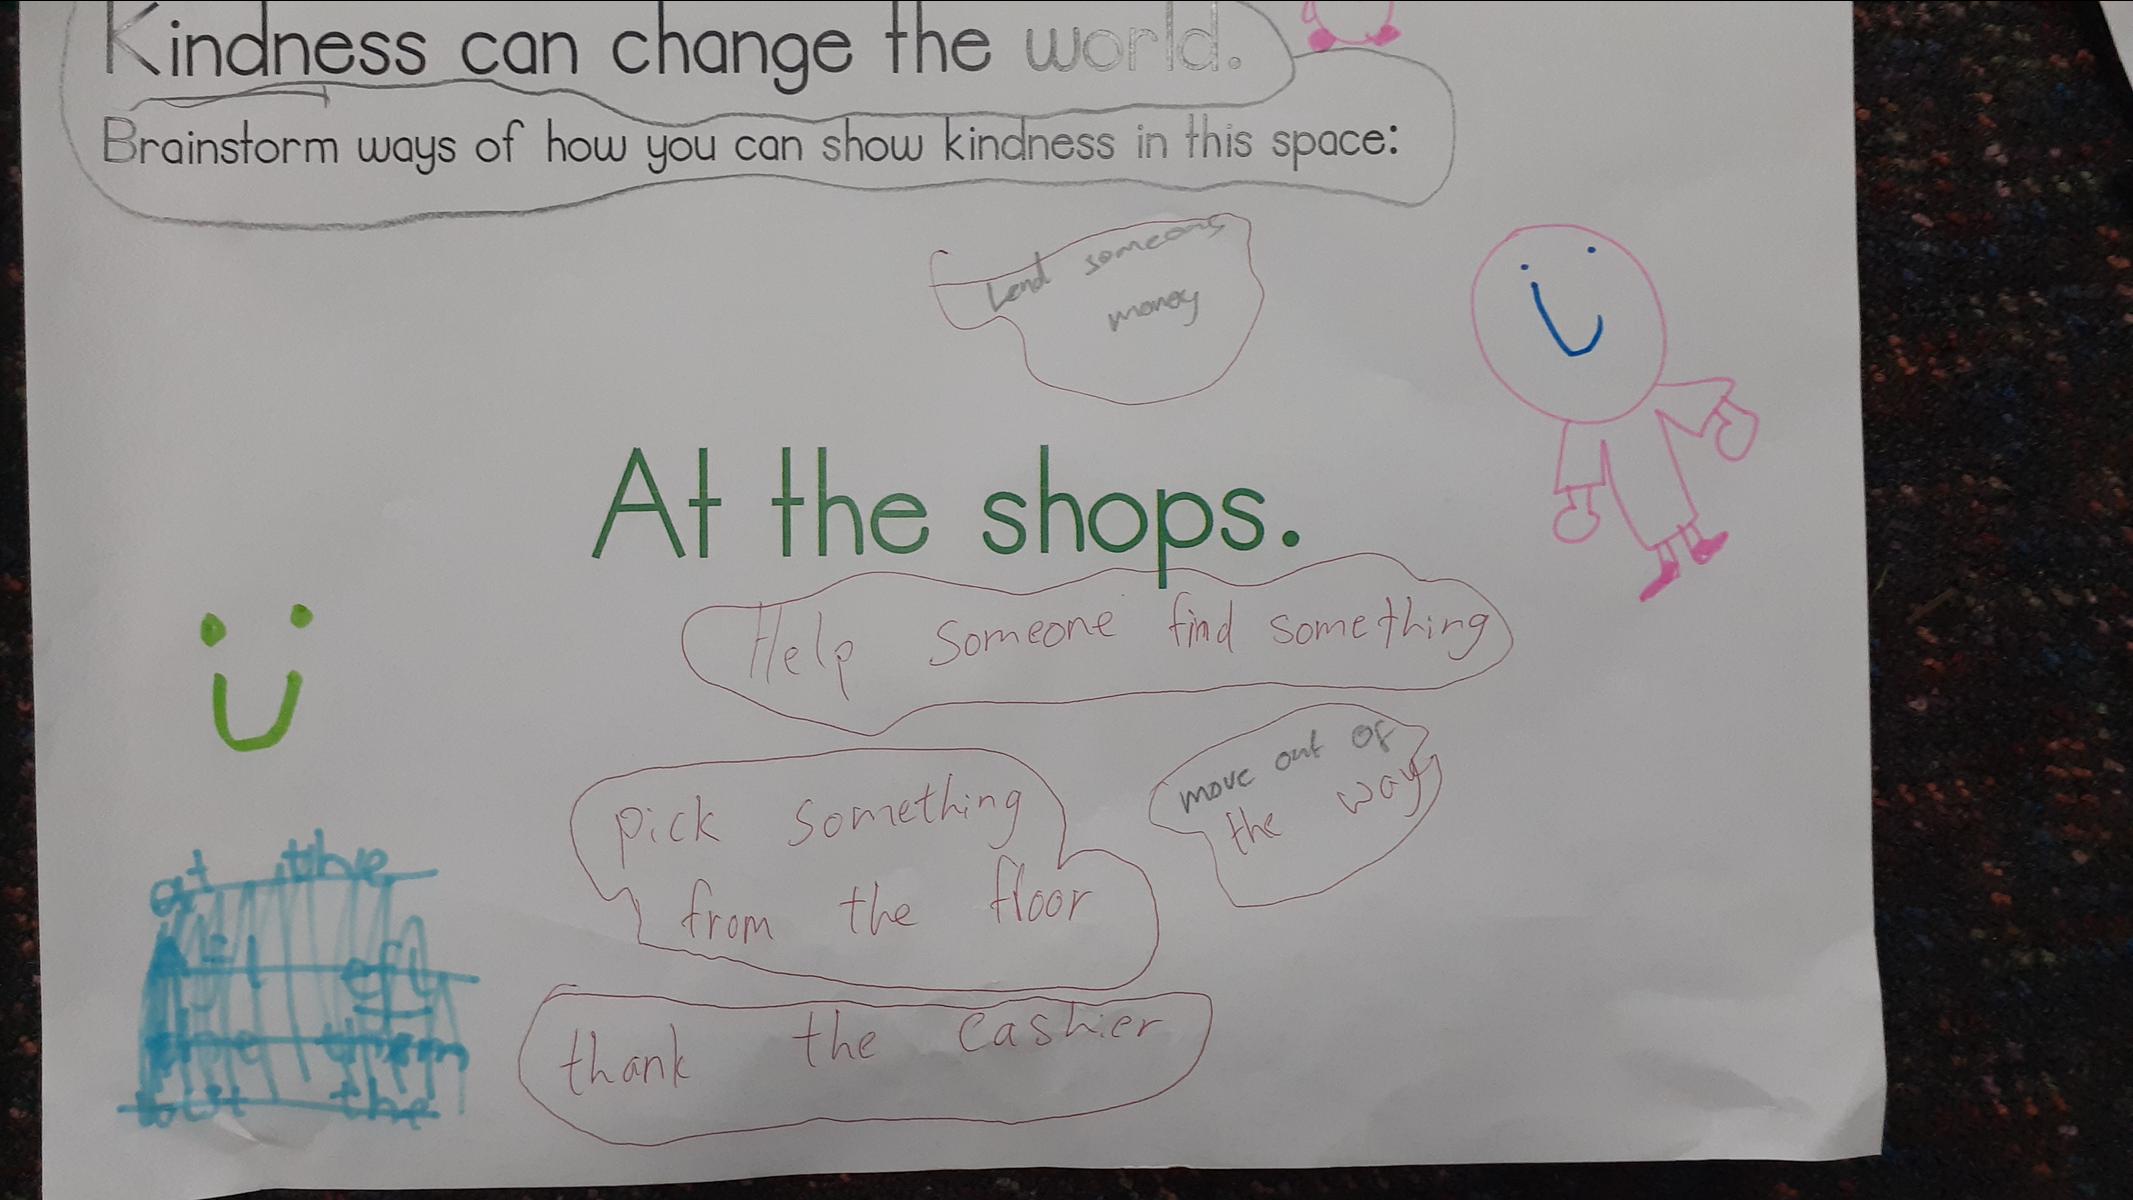 Kindness can change the world.
Brainstorm ways of how you can show kindness in this space:
Lend someone
money
At the shops.
Help someone find something
pick something
from the floor
move out of
the way
thank the cashier
at the
the